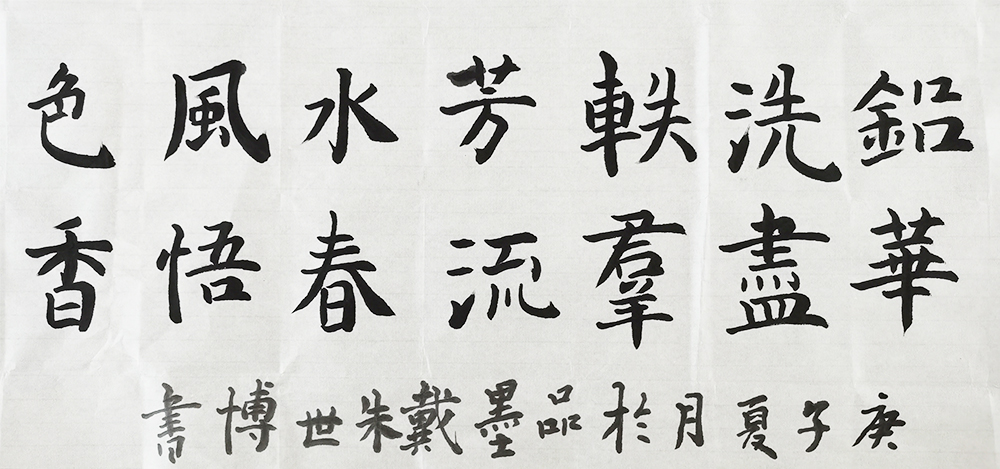 鉛華
洗盡
軼羣
芳流
水春
風悟
色香
庚子夏月於品墨戴朱世博書